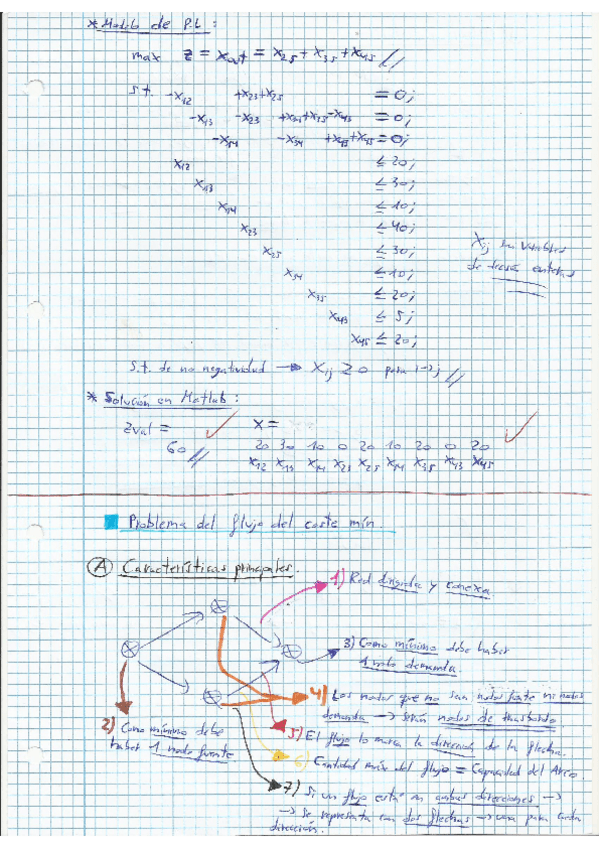 * Modelo de P.L :
max z = x_out = x25 + x35 + x45 //
s.t. -x12 +x23+x25 = 0;
-x13 -x23 +x34+x35-x43 = 0;
-x14 -x34 +x43+x45 = 0;
x12 ≤ 20;
x13 ≤ 30;
x14 ≤ 10;
x23 ≤ 40;
x25 ≤ 30;
x34 ≤ 10;
x35 ≤ 20;
x43 ≤ 5;
x45 ≤ 20;
Xij son variables
de decisión enteras
s.t. de no negatividad → Xij ≥ 0 para i→j //
* Solución en Matlab :
Zval = X =
60 // 20 30 10 0 20 10 20 0 20
x12 x13 x14 x23 x25 x34 x35 x43 x45
Problema del flujo del coste mín.
A Características principales.
1) Red dirigida y conexa.
3) Como mínimo debe haber
1 nodo demanda.
2) Como mínimo debe
haber 1 nodo fuente
4) Los nodos que no sean nodos fuente ni nodos
demanda → serán nodos de trasbordo.
5) El flujo lo marca la dirección de la flecha.
6) Cantidad máx del flujo = Capacidad del Arco.
7) Si un flujo está en ambas direcciones →
→ se representa con dos flechas → una para cada
dirección.